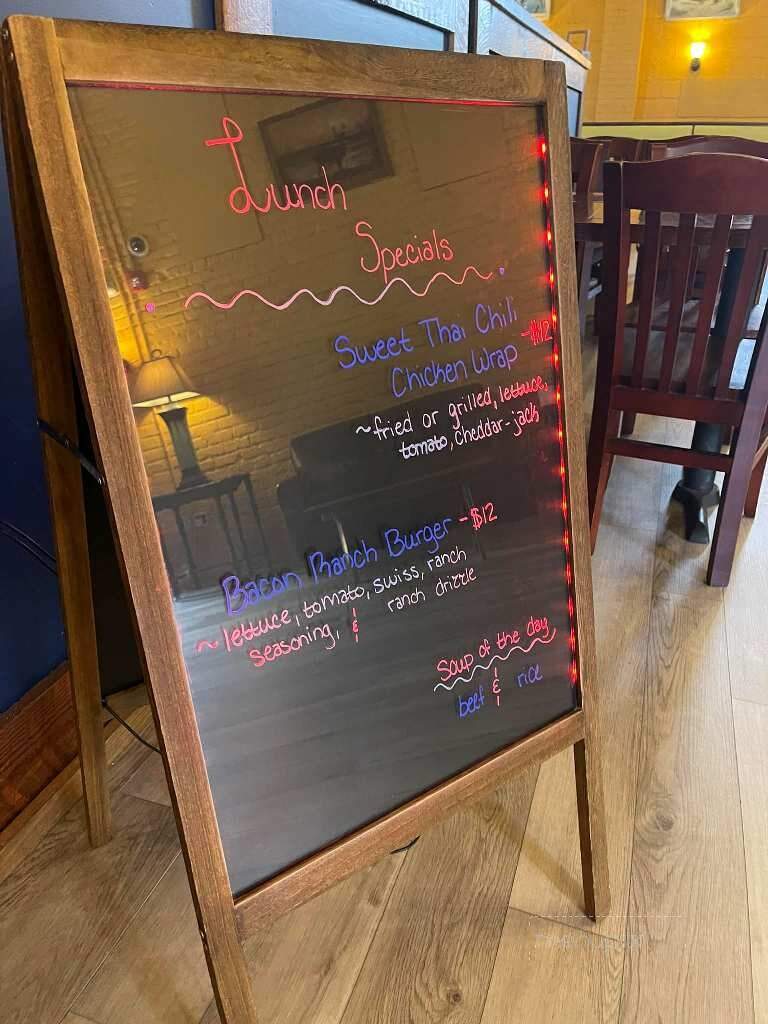 Lunch
Specials
Sweet Thai Chili
Chicken Wrap -$12
~fried or grilled, lettuce,
tomato, cheddar-jack
Bacon Ranch Burger -$12
~ lettuce, tomato, swiss, ranch
seasoning, & ranch drizzle
Soup of the day
beef & rice